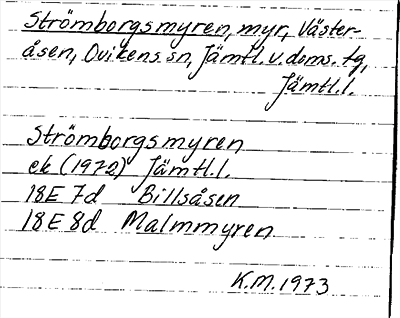 Strömborgsmyren, myr, Väster-
åsen, Ovikens sn, Jämtl. v. doms. tg,
Jämtl. l.
Strömborgsmyren
ek (1972) Jämtl. l.
18E 7d Billsåsen
18E 8d Malmmyren
K.M. 1973